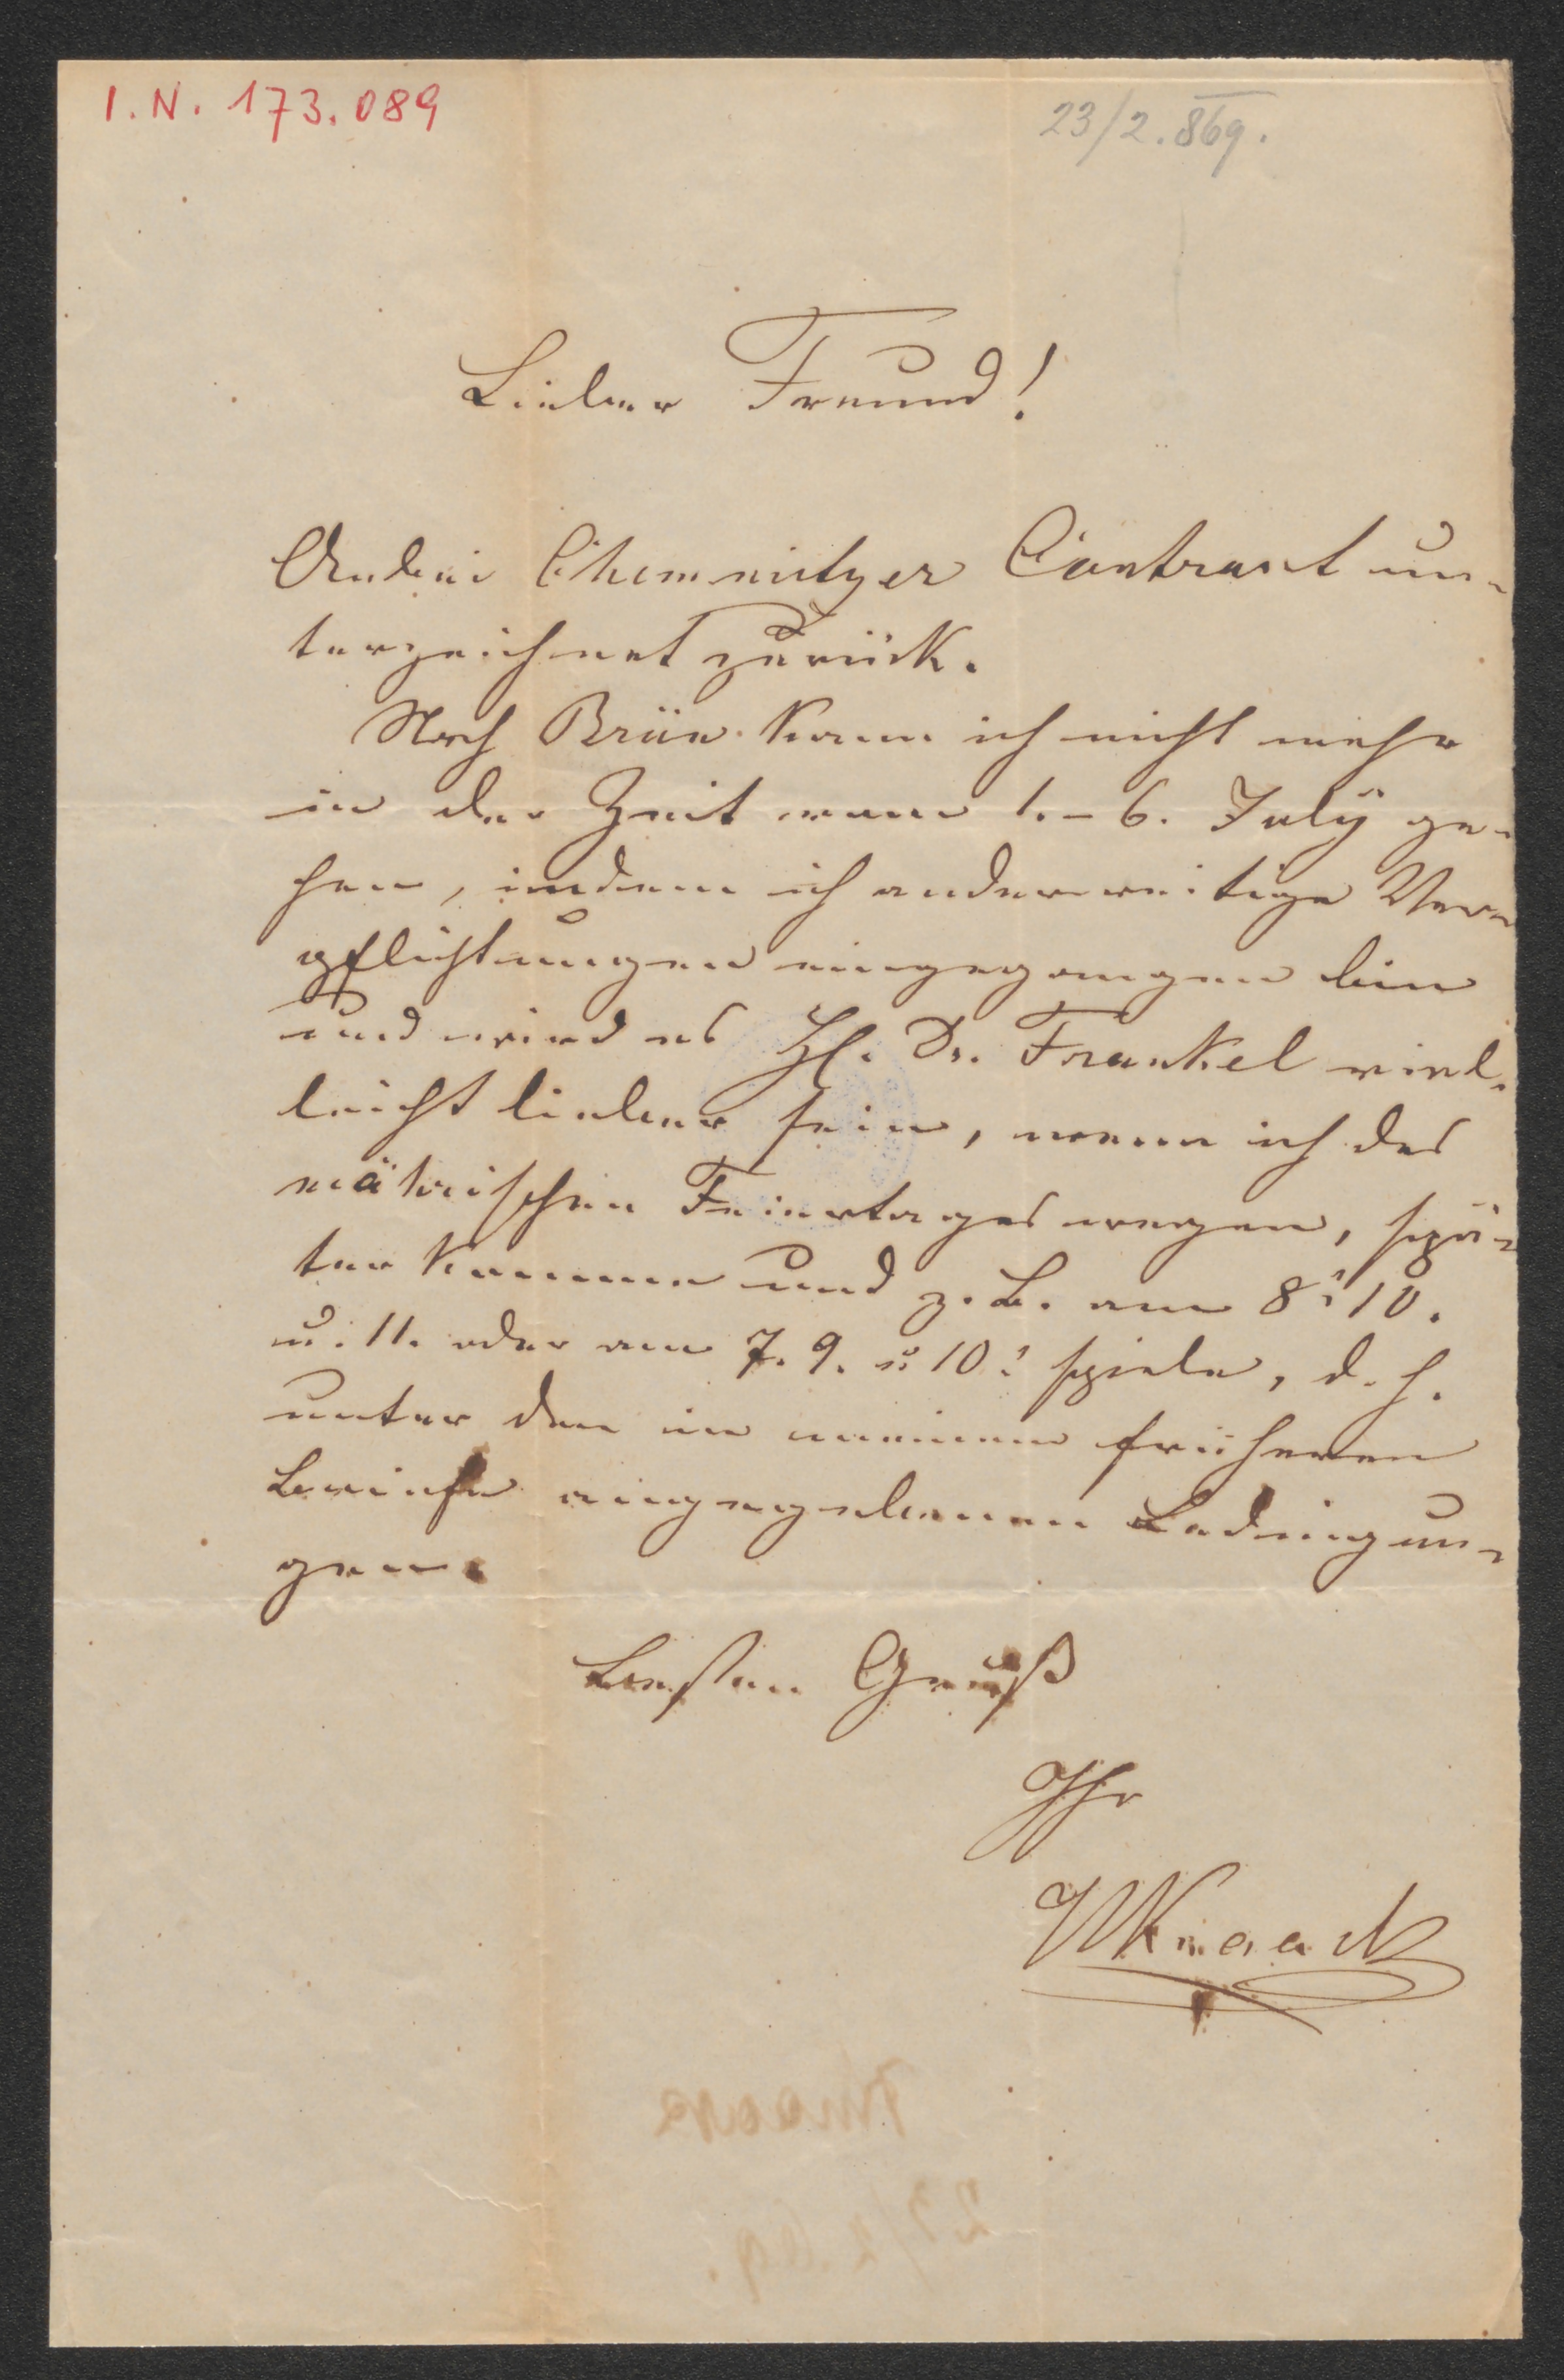 I. N. 173.089
23/2. 869.
Lieber Freund!
Anbei Chemnitzer Contract un-
terzeichnet zurück.
Nach Brün kann ich nicht mehr
in der Zeit vom 1.- 6. July ge-
hen, indem ich anderweitige Ver-
pflichtungen eingegangen bin
und wird es H. Dr. Frankel viel-
leicht lieber sein, wenn ich des
mährischen Feiertages wegen, spä-
ter komme und z. B. am 8. 10.
u. 11. oder am 7. 9. u 10. spiele, d. h.
unter den in meinem früheren
Briefe angegebenen Bedingun-
gen.
Besten Gruß
Ihr
WKnaack
Knaack
23/2 69.